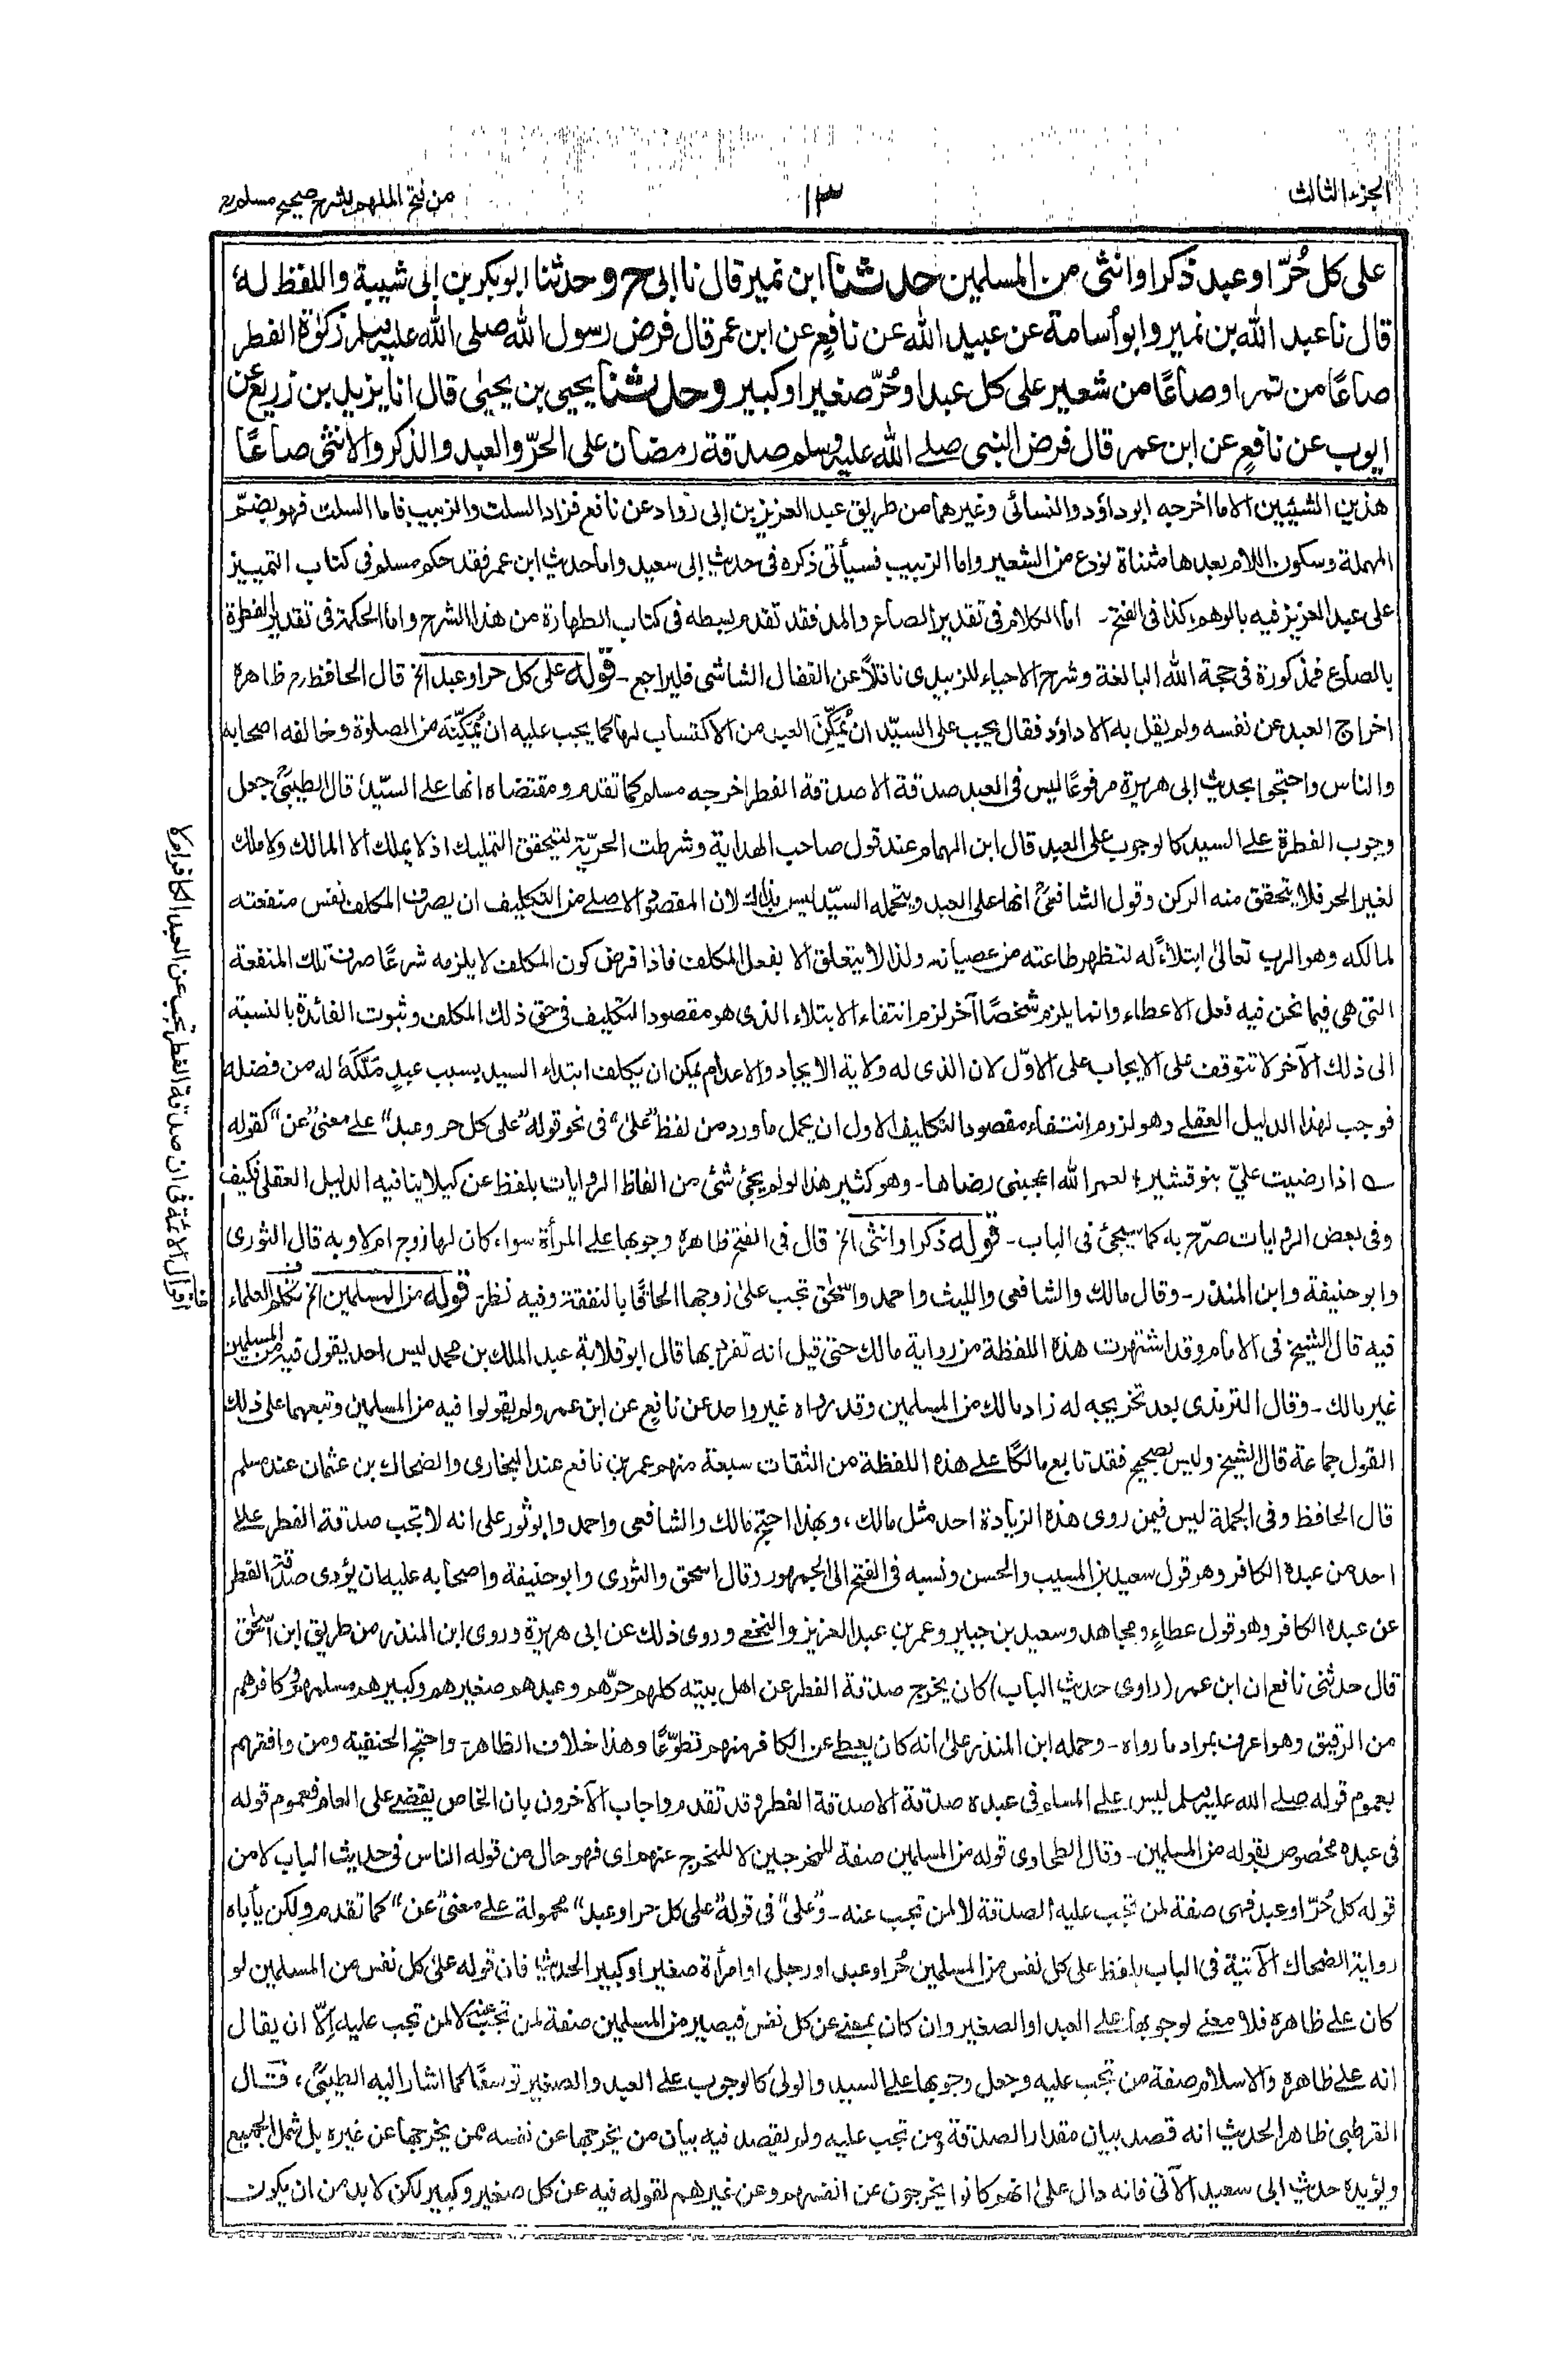 الجزء الثالث
١٣
من فتح الملهم بشرح صحيح مسلم رح
على كل حُرّ او عبد ذكر او انثى من المسلمين حدثنا ابن نمير قال نا ابى ح وحدثنا ابو بكر بن ابى شيبة واللفظ له
قال نا عبد الله بن نمير وابو أسامة عن عبيد الله عن نافعٍ عن ابن عمر قال فرض رسول الله صلى الله عليه وسلم زكوة الفطر
صاعًا من تمر او صاعًا من شعير على كل عبد او حُرّ صغير او كبير وحدثنا يحيى بن يحيى قال انا يزيد بن زريع عن
ايوب عن نافعٍ عن ابن عمر قال فرض النبى صلے الله عليه وسلم صدقة رمضان على الحرّ والعبد والذكر والانثى صاعًا
هذين الشيئين الا ما اخرجه ابو داؤد والنسائى وغيرهما من طريق عبد العزيز بن ابى رواد عن نافع فزاد السلت والزبيب فاما السلت فهو بضمّ
المهملة وسكون اللام بعدها مثناة نوع من الشعير واما الزبيب فسيأتى ذكره فى حديث ابى سعيد واما حديث ابن عمر فقد حكم مسلم فى كتاب التمييز
على عبد العزيز فيه بالوهم كذا فى الفتح - اما الكلام فى تقدير الصاع والمد فقد تقدم بسطه فى كتاب الطهارة من هذا الشرح واما الحكمة فى تقدير الفطرة
بالصاع فمذكورة فى حجة الله البالغة وشرح الاحياء للزبيدى ناقلاً عن القفال الشاشى فليراجع - قوله على كل حر او عبد الخ قال الحافظ رح ظاهره
اخراج العبد عن نفسه ولم يقل به الا داؤد فقال يجب على السيّد ان يُمَكِّنَ العبد من الاكتساب لها كما يجب عليه ان يُمَكِّنَه من الصلوة وخالفه اصحابه
والناس واحتجوا بحديث ابى هريرة مرفوعًا ليس فى العبد صدقة الا صدقة الفطر اخرجه مسلم كما تقدم ومقتضاه انها على السيّد، قال الطيبىؒ جعل
وجوب الفطرة على السيد كالوجوب على العبد قال ابن الهمام عند قول صاحب الهداية وشرطت الحريّة ليتحقق التمليك اذ لا يملك الا المالك ولا ملك
لغير الحر فلا يتحقق منه الركن وقول الشافعىؒ انها على العبد ويتحمله السيّد ليس بذاك لان المقصود الاصلے من التكليف ان يصرف المكلف نفس منفعته
لمالكه وهو الرب تعالى ابتلاءً له لتظهر طاعته من عصيانه ولذا لا يتعلق الا بفعل المكلف فاذا فرض كون المكلف لا يلزمه شرعًا صرف تلك المنفعة
التى هى فيما نحن فيه فعل الاعطاء وانما يلزم شخصًا آخر لزم انتفاء الابتلاء الذى هو مقصود التكليف فى حق ذلك المكلف وثبوت الفائدة بالنسبة
الى ذلك الآخر لا تتوقف على الايجاب على الاوّل لان الذى له ولاية الايجاد والاعدام يمكن ان يكلف ابتداء السيد بسبب عبدٍ مَلَّكَهُ له من فضله
فوجب لهذا الدليل العقلے وهو لزوم انتفاء مقصود التكليف الاول ان يحمل ما ورد من لفظ "على" فى نحو قوله "على كل حر وعبد" علے معنى "عن" كقوله
ے اذا رضيت علىّ بنو قشير ؛ لعمر الله اعجبنى رضاها - وهو كثير هذا لو لم يجئ شئ من الفاظ الروايات بلفظ عن كيلا ينافيه الدليل العقلى فكيف
وفى بعض الروايات صرّح به كما سيجئ فى الباب - قوله ذكر او انثى الخ قال فى الفتح ظاهره وجوبها على المرأة سواء كان لها زوج ام لا وبه قال الثورى
وابو حنيفة وابن المنذر - وقال مالك والشافعى والليث واحمد واسحٰق تجب على زوجها الحاقًا بالنفقة وفيه نظر - قوله من المسلمين الخ تكلم العلماء
فيه قال الشيخ فى الامام وقد اشتهرت هذه اللفظة من رواية مالك حتى قيل انه تفرد بها قال ابو قلابة عبد الملك بن محمد ليس احد يقول فيه من المسلمين
غير مالك - وقال الترمذى بعد تخريجه له زاد مالك من المسلمين وقد رواه غير واحد عن نافع عن ابن عمر ولم يقولوا فيه من المسلمين وتبعهما على ذلك
القول جماعة قال الشيخ وليس بصحيح فقد تابع مالكًا على هذه اللفظة من الثقات سبعة منهم عمر بن نافع عند البخارى والضحاك بن عثمان عند مسلم
قال الحافظ وفى الجملة ليس فيمن روى هذه الزيادة احد مثل مالك، وبهذا احتج مالك والشافعى واحمد وابو ثور على انه لا تجب صدقة الفطر على
احد من عبده الكافر وهو قول سعيد بن المسيب والحسن ونسبه فى الفتح الى الجمهور وقال اسحق والثورى وابو حنيفة واصحابه عليه ان يؤدى صدقة الفطر
عن عبده الكافر وهو قول عطاءٍ ومجاهد وسعيد بن جبير وعمر بن عبد العزيز والنخعے وروى ذلك عن ابى هريرة وروى ابن المنذر من طريق ابن اسحٰق
قال حدثنى نافع ان ابن عمر (راوى حديث الباب) كان يخرج صدقة الفطر عن اهل بيته كلهم حرّهم وعبدهم صغيرهم وكبيرهم مسلمهم وكافرهم
من الرقيق وهو اعرف بمراد ما رواه - وحمله ابن المنذر على انه كان يعطى عن الكافر منهم تطوّعًا وهذا خلاف الظاهر - واحتج الحنفية ومن وافقهم
بعموم قوله صلے الله عليه وسلم ليس على المسلم فى عبده صدقة الا صدقة الفطر وقد تقدم واجاب الآخرون بان الخاص يقضے على العام فعموم قوله
فى عبده مخصوص بقوله من المسلمين - وقال الطحاوى قوله من المسلمين صفة للمخرجين لا للمخرج عنهم اى فهو حال من قوله الناس فى حديث الباب لا من
قوله كل حُرّ او عبد فهى صفة لمن تجب عليه الصدقة لا لمن تجب عنه - و"على" فى قوله "على كل حر او عبد" محمولة علے معنى "عن" كما تقدم ولكن يأباه
رواية الضحاك الآتية فى الباب بلفظ على كل نفس من المسلمين حُر او عبد او رجل او امرأة صغير او كبير الحديث فان قوله على كل نفس من المسلمين لو
كان علے ظاهره فلا معنے لوجوبها علے العبد او الصغير وان كان بمعنے عن كل نفس فيصير من المسلمين صفة لمن تجب عنه لا لمن تجب عليه إلّا ان يقال
انه علے ظاهره والاسلام صفة من تجب عليه وجعل وجوبها على السيد والولى كالوجوب على العبد والصغير توسعًا كما اشار اليه الطيبىؒ، قال
القرطبى ظاهر الحديث انه قصد بيان مقدار الصدقة ومن تجب عليه ولم يقصد فيه بيان من يخرجها عن نفسه ممن يخرجها عن غيره بل شمل الجميع
ويؤيده حديث ابى سعيد الآتى فانه دال على انهم كانوا يخرجون عن انفسهم وعن غيرهم لقوله فيه عن كل صغير وكبير لكن لا بد من ان يكون
اقوال الائمة فى ان صدقة الفطر تجب عن العبد الكافر ام لا